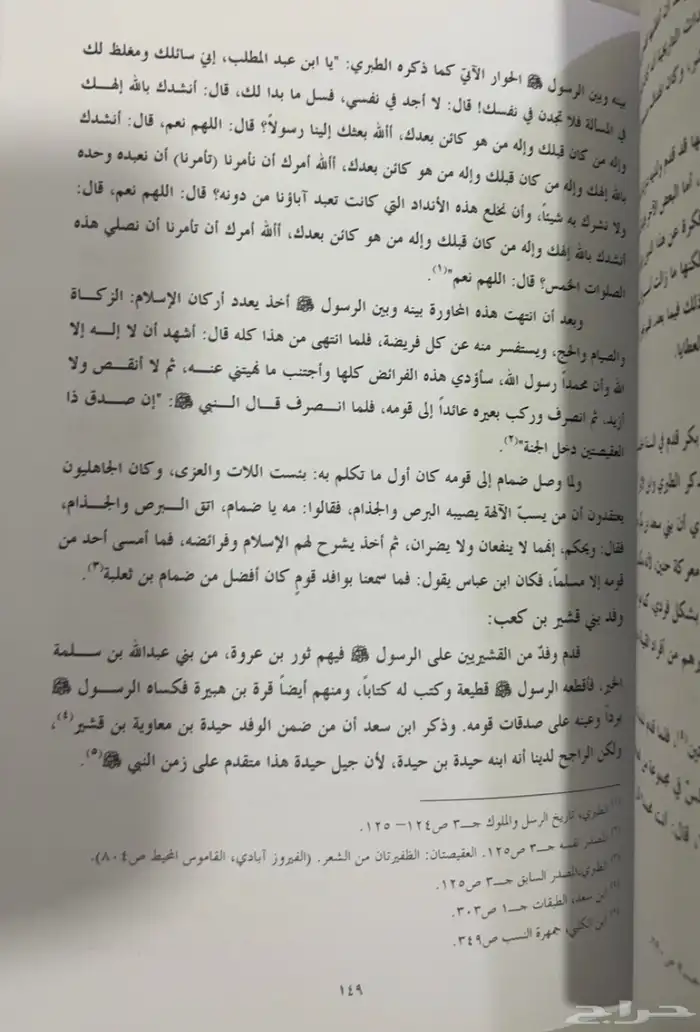 بينه وبين الرسول ﷺ الحوار الآتيّ كما ذكره الطبري: "يا ابن عبد المطلب، إنيّ سائلك ومغلظ لك
في المسألة فلا تجدن في نفسك! قال: لا أجد في نفسي، فسل ما بدا لك، قال: أنشدك بالله إلهـك
وإله من كان قبلك وإله من هو كائن بعدك، أالله بعثك إلينا رسولاً؟ قال: اللهم نعم، قال: أنشدك
بالله إلهك وإله من كان قبلك وإله من هو كائن بعدك، أالله أمرك أن نأمرنا (تأمرنا) أن نعبده وحده
ولا نشرك به شيئاً، وأن نخلع هذه الأنداد التي كانت تعبد آباؤنا من دونه؟ قال: اللهم نعم، قال:
أنشدك بالله إلهك وإله من كان قبلك وإله من هو كائن بعدك، أالله أمرك أن تأمرنا أن نصلي هذه
الصلوات الخمس؟ قال: اللهم نعم"(١).
وبعد أن انتهت هذه المحاورة بينه وبين الرسول ﷺ أخذ يعدد أركان الإسلام: الزكـاة
والصيام والحج، ويستفسر منه عن كل فريضة، فلما انتهى من هذا كله قال: أشهد أن لا إلـه إلا
الله وأن محمداً رسول الله، سأؤدي هذه الفرائض كلها وأجتنب ما نهيتني عنـه، ثم لا أنقـص ولا
أزيد، ثم انصرف وركب بعيره عائداً إلى قومه، فلما انـصرف قـال الـنبي ﷺ: "إن صـدق ذا
العقيصتين دخل الجنة"(٢).
ولما وصل ضمام إلى قومه كان أول ما تكلم به: بئست اللات والعزى، وكان الجاهليون
يعتقدون أن من يسبّ الآلهة يصيبه البرص والجذام، فقالوا: مه يا ضمام، اتق الـبرص والجـذام،
فقال: ويحكم، إنهما لا ينفعان ولا يضران، ثم أخذ يشرح لهم الإسلام وفرائضه، فما أمسى أحد من
قومه إلا مسلماً، فكان ابن عباس يقول: فما سمعنا بوافد قومٍ كان أفضل من ضمام بن ثعلبة(٣).
وفد بني قشير بن كعب:
قدم وفدٌ من القشيريين على الرسول ﷺ فيهم ثور بن عروة، من بني عبدالله بن سـلمة
الخير، فأقطعه الرسول ﷺ قطيعة وكتب له كتاباً، ومنهم أيضاً قرة بن هبيرة فكساه الرسـول ﷺ
برداً وعينه على صدقات قومه. وذكر ابن سعد أن من ضمن الوفد حيدة بن معاوية بن قشير(٤)،
ولكن الراجح لدينا أنه ابنه حيدة بن حيدة، لأن جيل حيدة هذا متقدم على زمن النبي ﷺ(٥).
(١) الطبري، تاريخ الرسل والملوك جـ٣ ص١٢٤– ١٢٥.
(٢) المصدر نفسه جـ٣ ص١٢٥. العقيصتان: الظفيرتان من الشعر. (الفيروز آبادي، القاموس المحيط ص٨٠٤).
(٣) الطبري، المصدر السابق جـ٣ ص١٢٥.
(٤) ابن سعد، الطبقات جـ١ ص٣٠٣.
(٥) ابن الكلبي، جمهرة النسب ص٣٤٩.
١٤٩
حراج